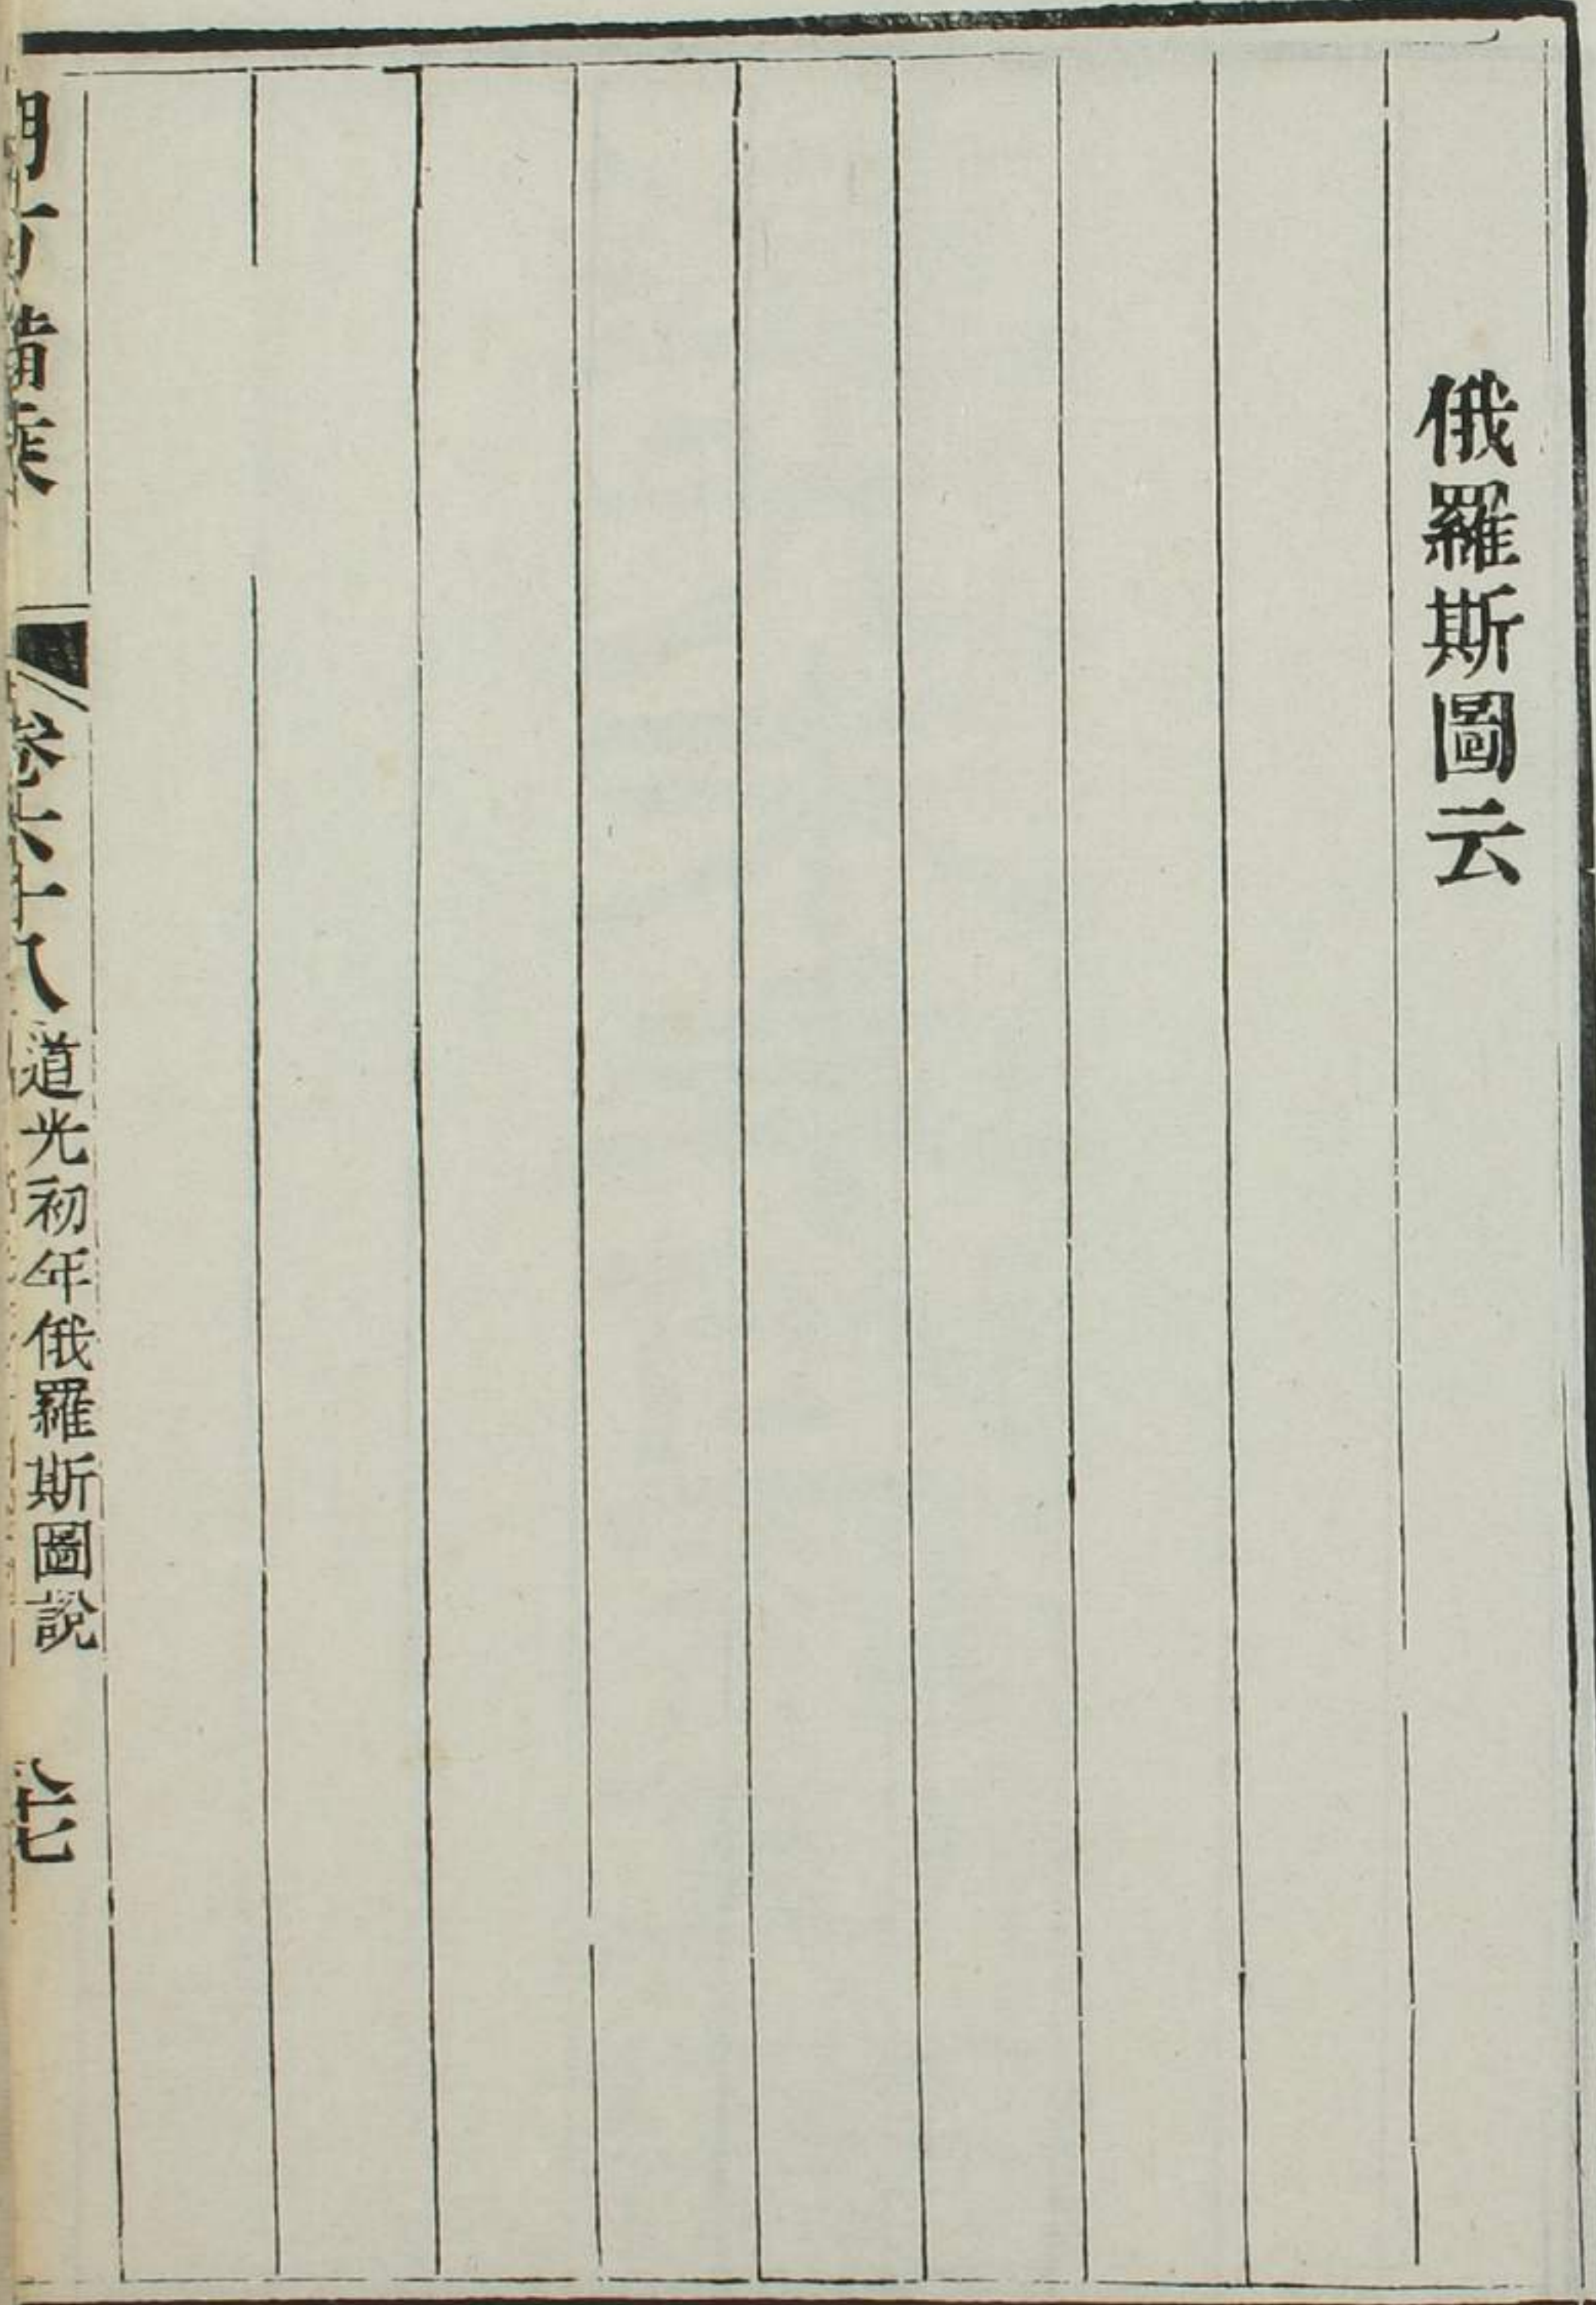 俄羅斯圖云
朔方備乘
卷六十八
道光初年俄羅斯圖說